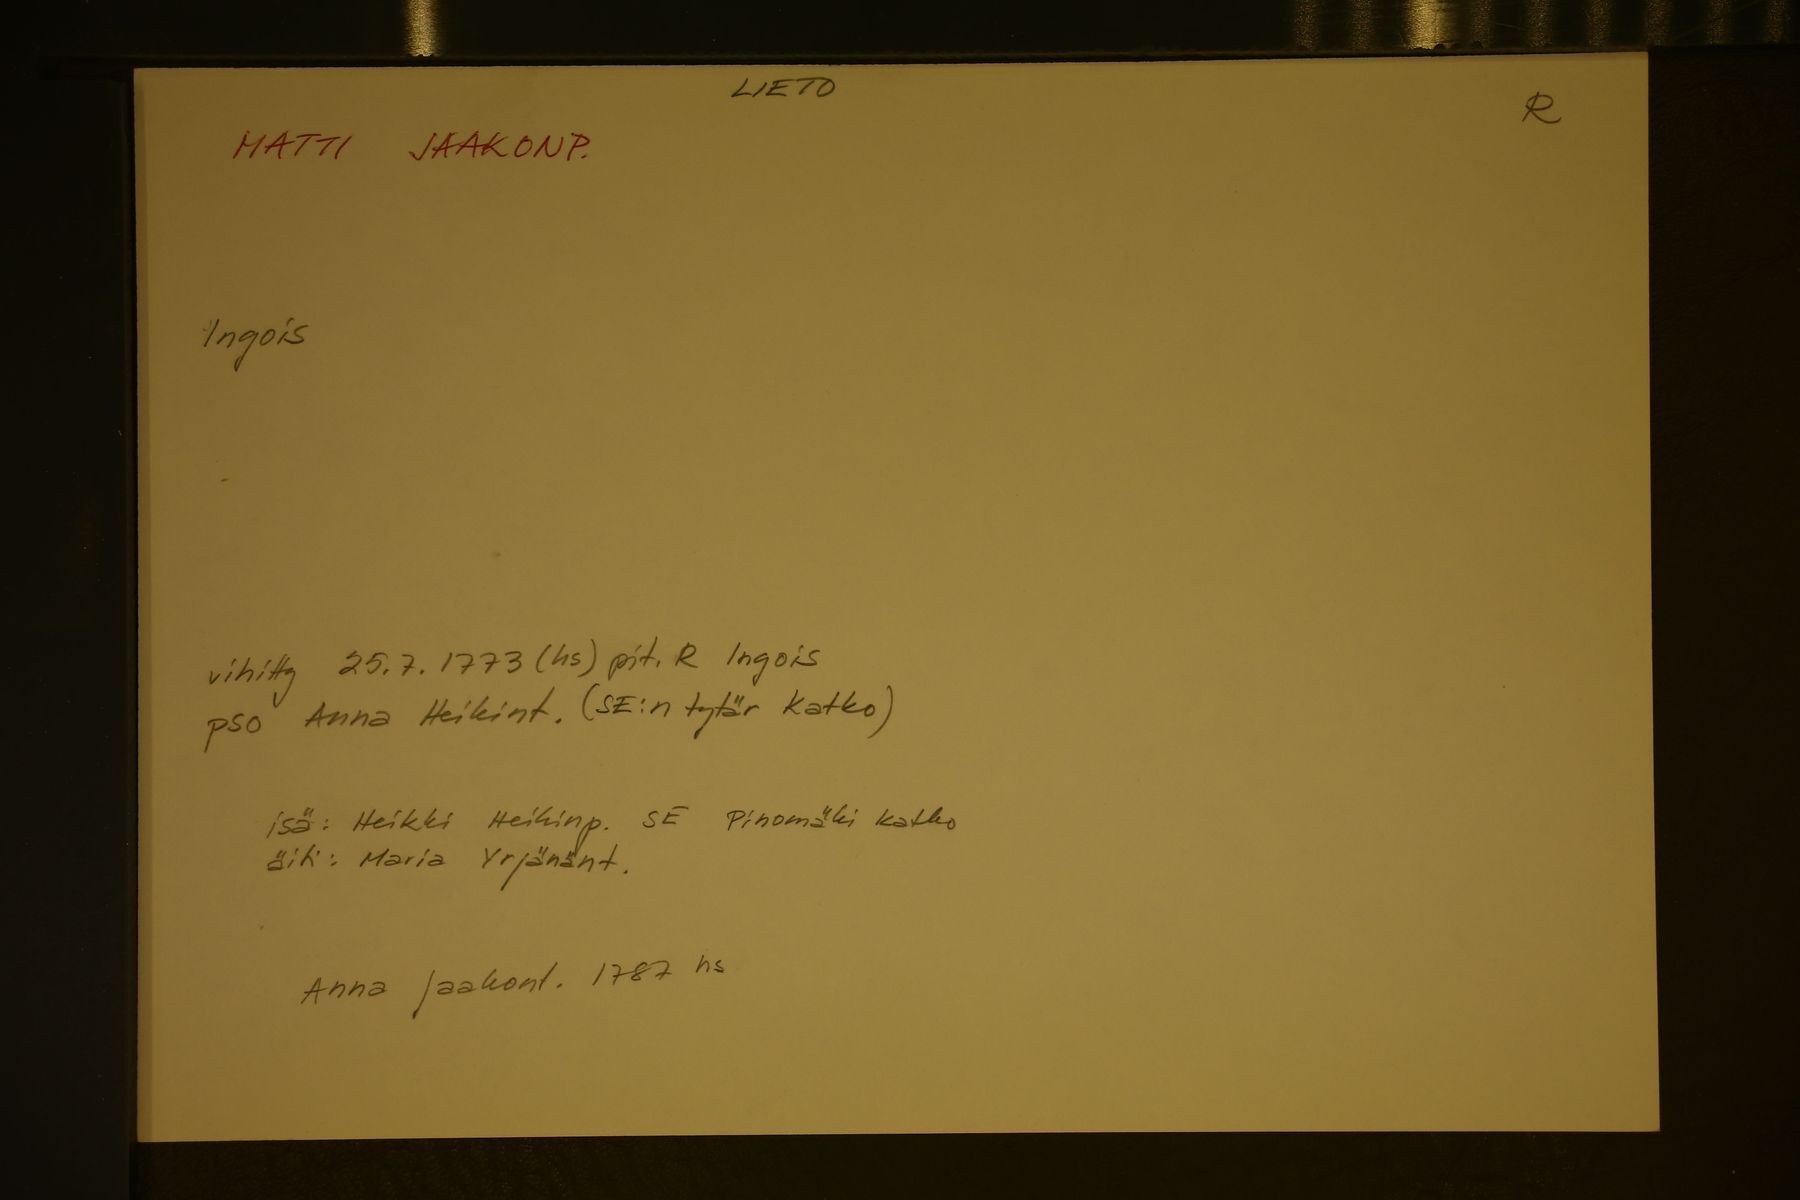 LIETO
R
MATTI JAAKONP.
Ingois
vihitty 25.7.1773 (hs) pit. R Ingois
pso Anna Heikint. (SE:n tytär Katko)
isä: Heikki Heikinp. SE Pinomäki Katko
äiti: Maria Yrjänänt.
Anna Jaakont. 1787 hs